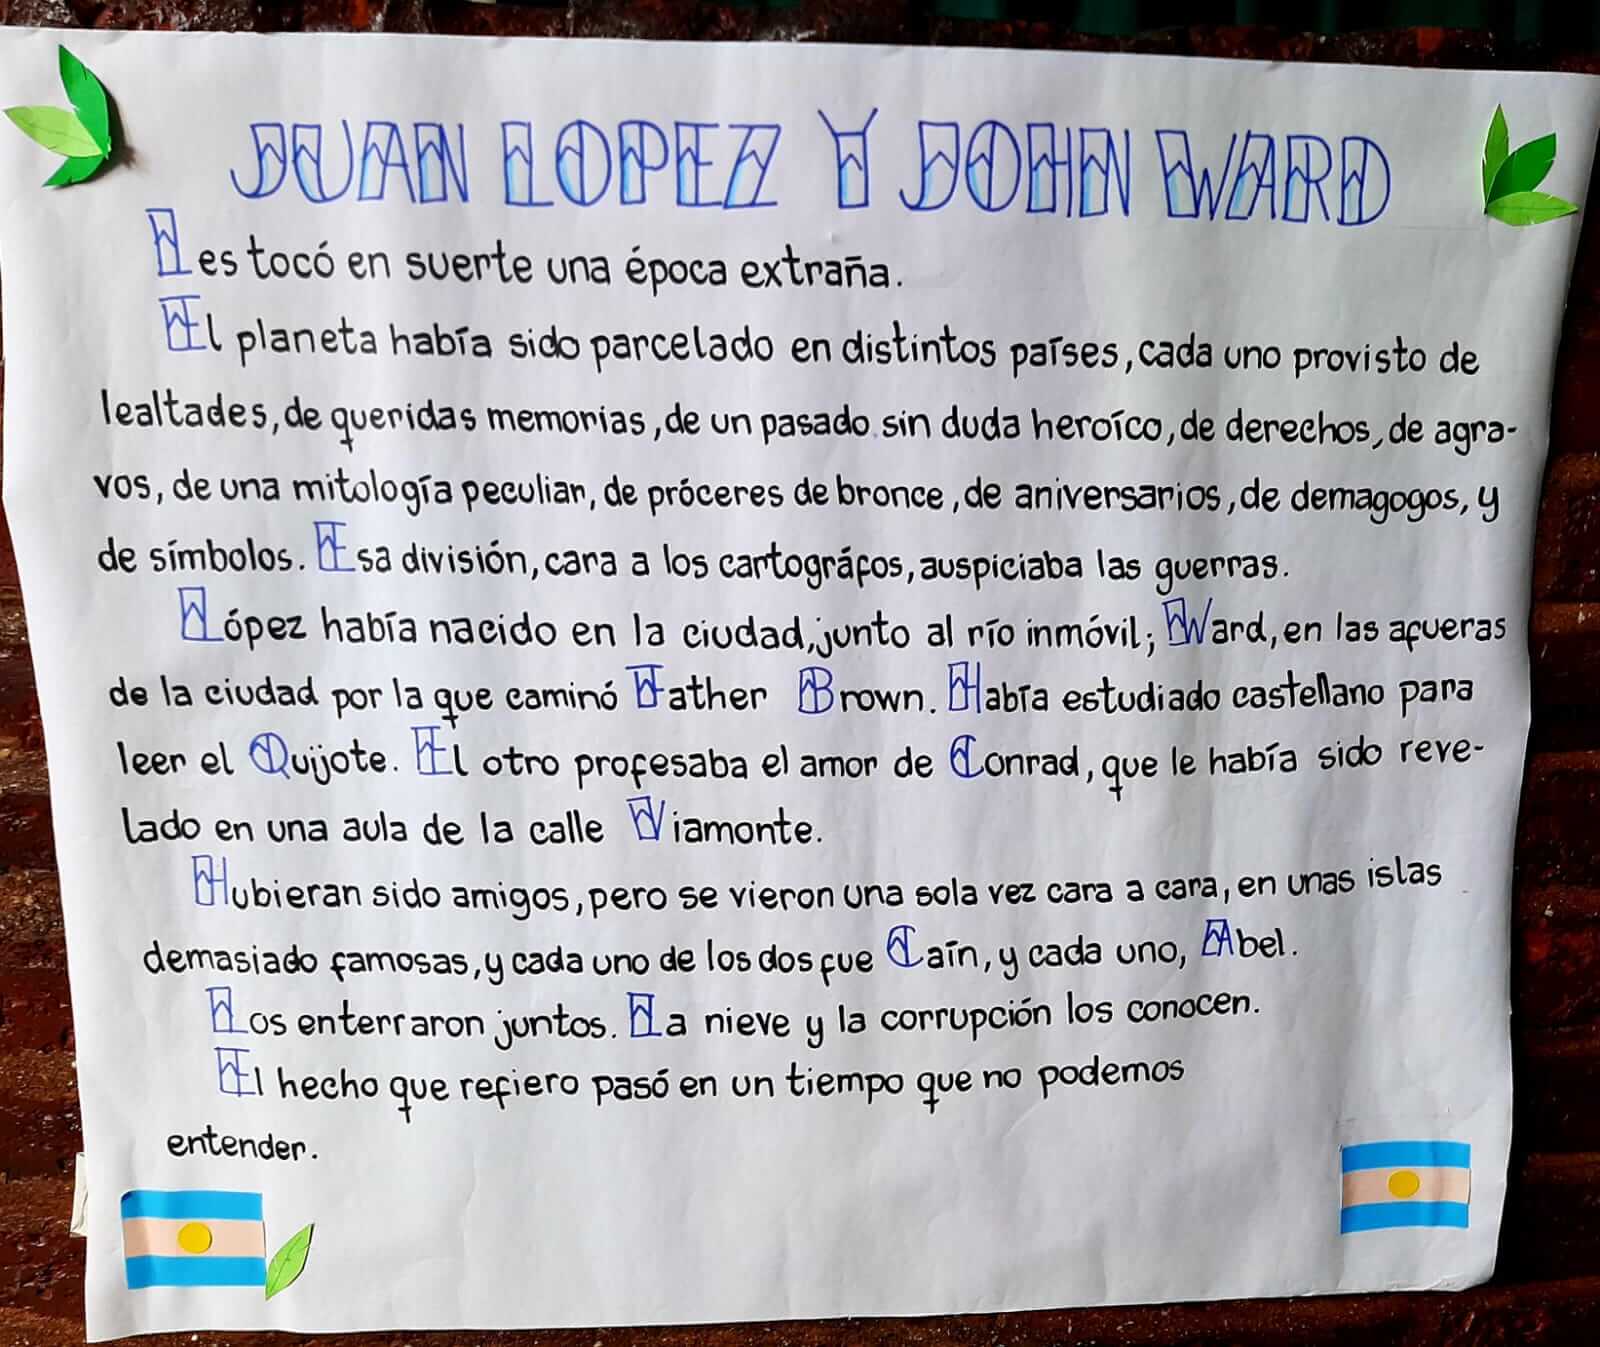 JUAN LOPEZ Y JOHN WARD
Les tocó en suerte una época extraña.
El planeta había sido parcelado en distintos países, cada uno provisto de
lealtades, de queridas memorias, de un pasado sin duda heroíco, de derechos, de agra-
vos, de una mitología peculiar, de próceres de bronce, de aniversarios, de demagogos, y
de símbolos. Esa división, cara a los cartográfos, auspiciaba las guerras.
López había nacido en la ciudad, junto al río inmóvil; Ward, en las afueras
de la ciudad por la que caminó Father Brown. Había estudiado castellano para
leer el Quijote. El otro profesaba el amor de Conrad, que le había sido reve-
lado en una aula de la calle Viamonte.
Hubieran sido amigos, pero se vieron una sola vez cara a cara, en unas islas
demasiado famosas, y cada uno de los dos fue Caín, y cada uno, Abel.
Los enterraron juntos. La nieve y la corrupción los conocen.
El hecho que refiero pasó en un tiempo que no podemos
entender.